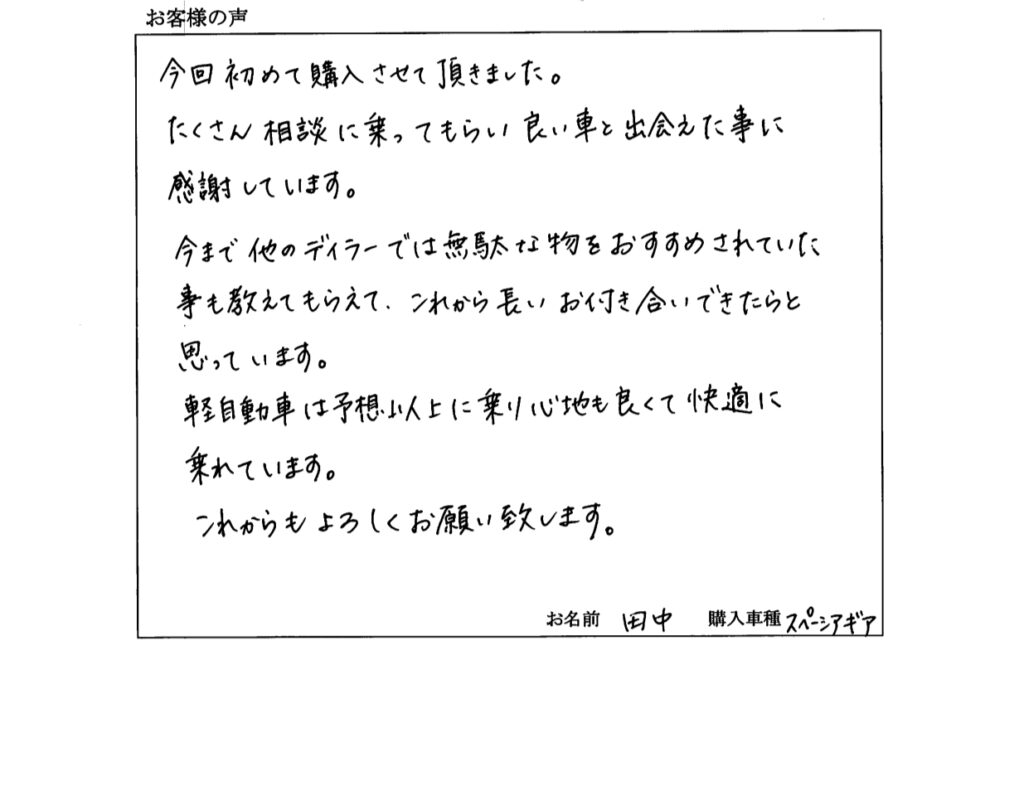 お客様の声
今回初めて購入させて頂きました。
たくさん相談に乗ってもらい良い車と出会えた事に
感謝しています。
今まで他のディラーでは無駄な物をおすすめされていた
事も教えてもらえて、これから長いお付き合いできたらと
思っています。
軽自動車は予想以上に乗り心地も良くて快適に
乗れています。
これからもよろしくお願い致します。
お名前 田中 購入車種 スペーシアギア